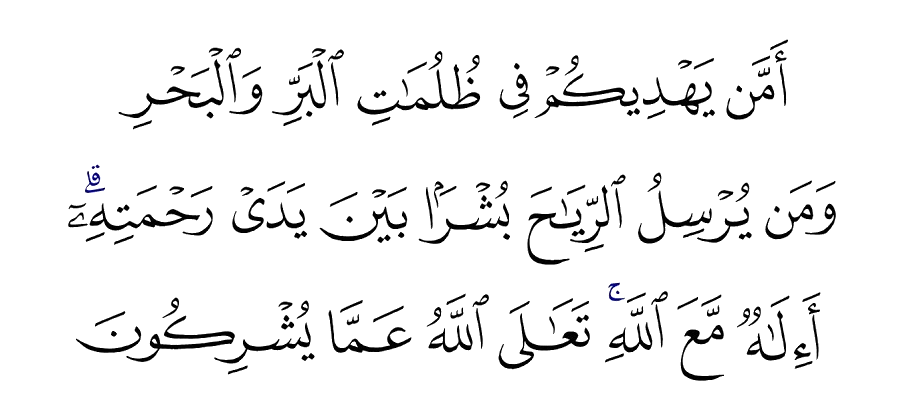 أَمَّن يَهْدِيكُمْ فِى ظُلُمَٰتِ ٱلْبَرِّ وَٱلْبَحْرِ
وَمَن يُرْسِلُ ٱلرِّيَٰحَ بُشْرًۢا بَيْنَ يَدَىْ رَحْمَتِهِۦٓ ۗ
أَءِلَٰهٌ مَّعَ ٱللَّهِ ۚ تَعَٰلَى ٱللَّهُ عَمَّا يُشْرِكُونَ